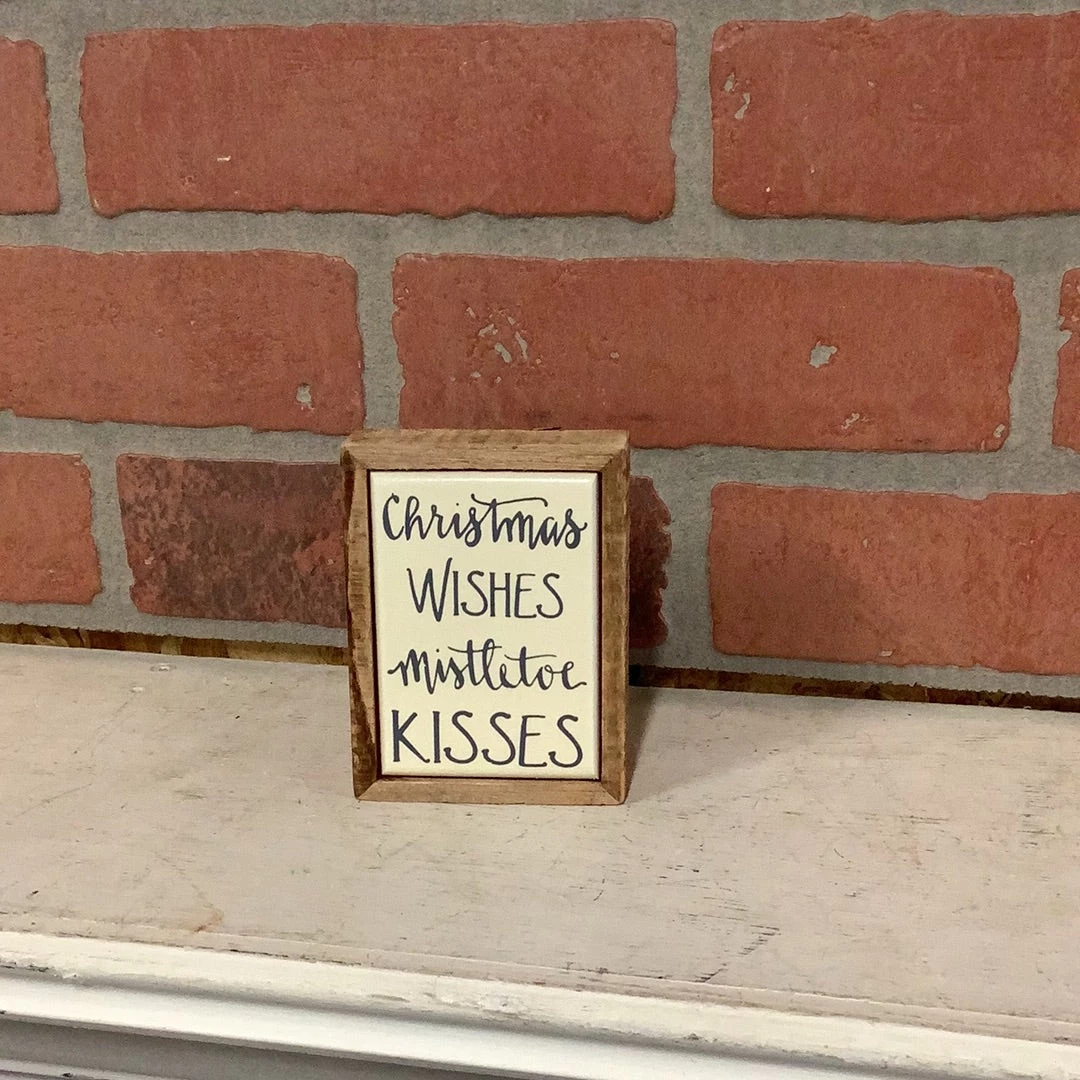 Christmas
WISHES
mistletoe
KISSES